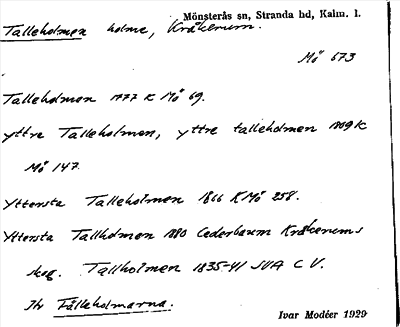 Mönsterås sn, Stranda hd, Kalm. l.
Talleholmen holme, Kråkerum.
Mö 673
Talleholmen 1777 K Mö 69.
yttre Talleholmen, yttre talleholmen 1809 K
Mö 147
Yttersta Talleholmen 1866 K Mö 258.
Yttersta Tallholmen 1880 Cederbaum Kråkerums
skog. Tallholmen 1835-41 JVA C V.
Jfr Fålleholmarna.
Ivar Modéer 1929